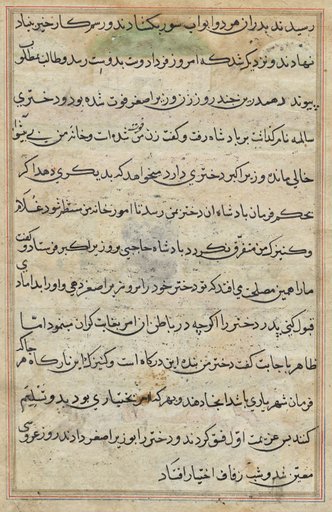 رسیدند پدر از هر دو ابواب سور بگشادند و رسم کار خیر بنیاد
نهادند و نزدیک شد که امروز فردا دوست بدوست رسد و طالب بمطلوب
پیوندد همدرین چند روز زن وزیر اصغر فوت شده بود و دختری
سالمه نام گذاشت بر پادشاه رفت و گفت زن من فوت شده است و خانهٔ من بی
خالی مانده وزیر اکبر دختری دارد میخواهد که بدیگری دهد اگر
بحکم فرمان پادشاه آن دختر بمن رسد تا امور خانهٔ من منتظم شود غلام
و کنیزک من متفرق نگردد پادشاه حاجبی بر وزیر اکبر فرستاد و گفت
ما را همین مصلحتی افتد که تو دختر خود را بر وزیر اصغر دهی و او را بدامادی
قبول کنی پدر دختر را اگرچه در باطن این امر بغایت گران مینمود اما
ظاهر باجابت گفت دختر من بنده این درگاه است و کنیزک این بارگاه هر جا که
فرمان شهریاری باشد آنجا دهند و بهر که امر بختیاری بود بدو تسلیم
کنند پس عزیمت اول فتق کردند و دختر را بوزیر اصغر دادند روز عروسی
معین شد و شب زفاف اختیار افتاد